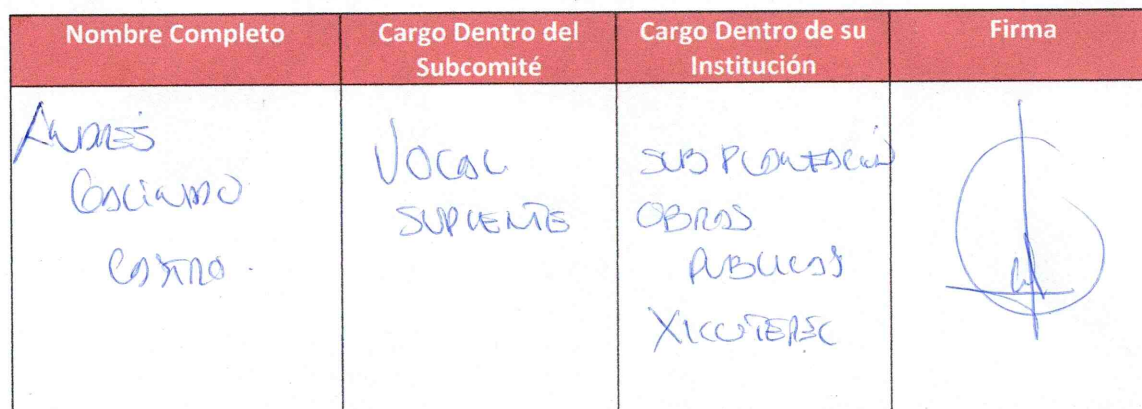 Nombre Completo
Cargo Dentro del
Subcomité
Cargo Dentro de su
Institución
Firma
ANDRÉS
GALINDO
CASTRO.
VOCAL
SUPLENTE
SUB PLANEACIÓN
OBRAS
PUBLICAS
XICOTEPEC